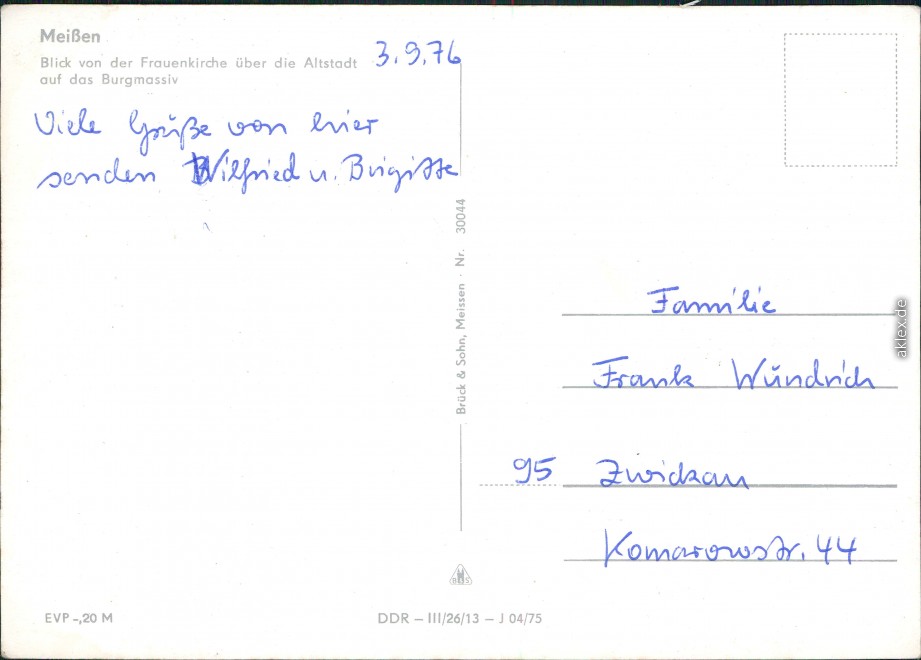 Meißen
Blick von der Frauenkirche über die Altstadt
auf das Burgmassiv
3.9.76
Viele Grüße von hier
senden Wilfried u. Birgitte
Brück & Sohn, Meissen · Nr. 30044
Familie
Frank Wundrich
95 Zwickau
Komarowstr. 44
B S
EVP -,20 M
DDR – III/26/13 – J 04/75
aklex.de